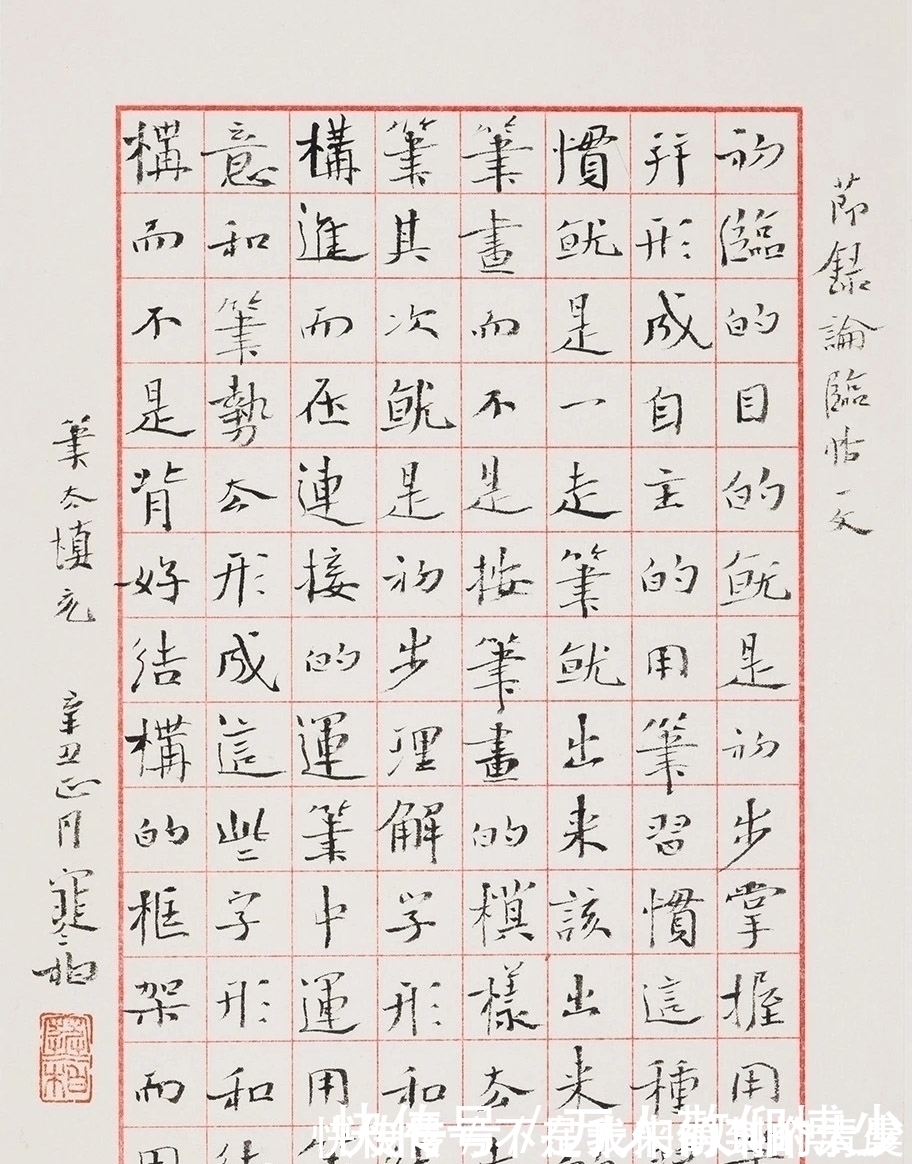 節錄論臨帖一文
初臨的目的就是初步掌握用
并形成自主的用筆習慣這種
慣就是一走筆就出来該出来
筆畫而不是按筆畫的模樣去
筆其次就是初步理解字形和
構進而在連接的運筆中運用
意和筆勢去形成這些字形和結
構而不是背好結構的框架而用
筆去填充 辛丑正月
快传号/万人敬仰博少